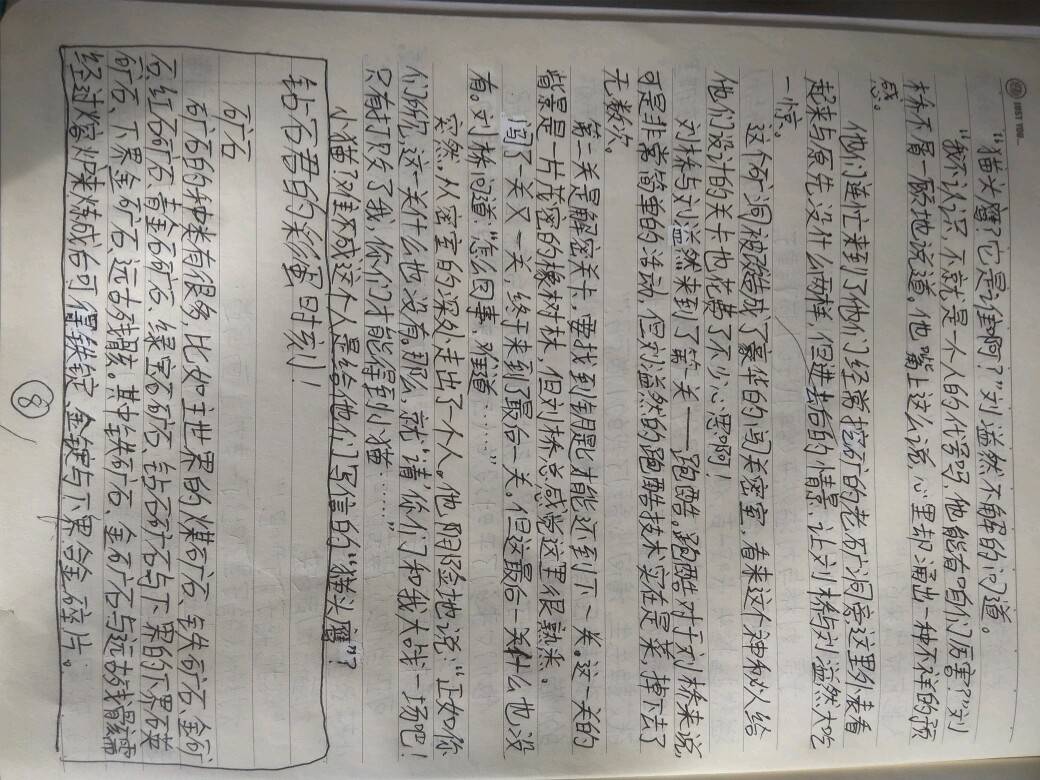 “猫头鹰？它是谁啊？”刘溢然不解的问道。
“我不认识，不就是一个人的代号吗，他能有咱们厉害？”刘
桥不屑一顾地说道。他嘴上这么说，心里却涌出一种不祥的预
感。
他们连忙来到了他们经常挖矿的老矿洞旁，这里外表看
起来与原先没什么两样，但进去后的情景，让刘桥与刘溢然大吃
一惊。
这个矿洞被改造成了豪华的闯关密室，看来这个神秘人给
他们设计的关卡也花费了不少心思啊！
刘桥与刘溢然来到了第一关——跑酷。跑酷对于刘桥来说，
可是非常简单的活动，但刘溢然的跑酷技术实在是菜，掉下去了
无数次。
第二关是解密关卡，要找到钥匙才能达到下一关。这一关的
背景是一片茂密的橡树林，但刘桥总感觉这里很熟悉。
闯了一关又一关，终于来到了最后一关。但这最后一关什么也没
有。刘桥问道“怎么回事，难道……”
突然，从密室的深处走出了一个人。他阴险地说：“正如你
们所见，这一关什么也没有。那么，就请你们和我大战一场吧！
只有打败了我，你们才能得到小猫……”
小猫？难不成这个人是给他们写信的“猫头鹰”？
钻石君的彩蛋时刻！
矿石
矿石的种类有很多，比如主世界的煤矿石、铁矿石、金矿
石、红石矿石、青金石矿石、绿宝石矿石、钻石矿石与下界的下界石英
矿石、下界金矿石、远古残骸。其中铁矿石、金矿石与远古残骸需
经过熔炉烧炼成后可得铁锭、金锭与下界合金碎片。
⑧